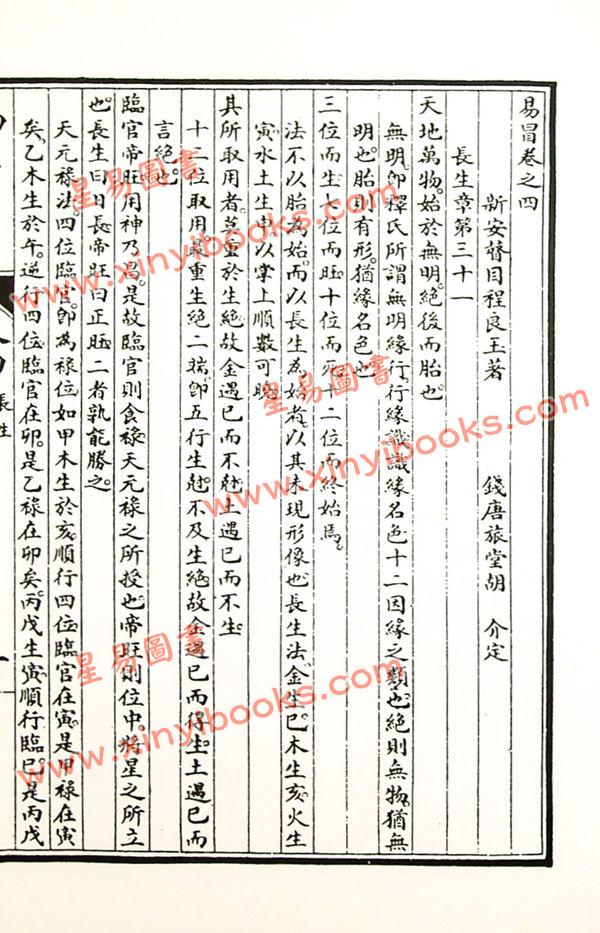 易冒卷之四
新安瞽目程良玉著 錢唐旅堂胡 介定
長生章第三十一
天地萬物。始於無明。絕後而胎也。
無明。卽釋氏所謂無明緣行。行緣識。識緣名色。十二因緣之類也。絕則無物。猶無
明也。胎則有形。猶緣名色也。
三位而生。七位而旺。十位而死。十二位而終始焉。
法不以胎為始。而以長生為始者。以其未現形像也。長生法。金生巳。木生亥。火生
寅。水土生申。以掌上順數可曉。
其所取用者。莫重於生絕。故金遇巳而不尅。土遇巳而不生。
十二位取用。最重生絕二端。卽五行生尅。不及生絕。故金遇巳而得生。土遇巳而
言絕也。
臨官帝旺。用神乃昌。是故臨官則食祿。天元祿之所授也。帝旺則位中。將星之所立
也。長生曰日長。帝旺曰正旺。二者孰能勝之。
天元祿法。四位臨官。卽為祿位。如甲木生於亥。順行四位。臨官在寅。是甲祿在寅
矣。乙木生於午。逆行四位。臨官在卯。是乙祿在卯矣。丙戊生寅。順行臨巳。是丙戊
長生
星易圖書
www.xinyibooks.com
星易圖書
www.xinyibooks.com
星易圖書
www.xinyibooks.com